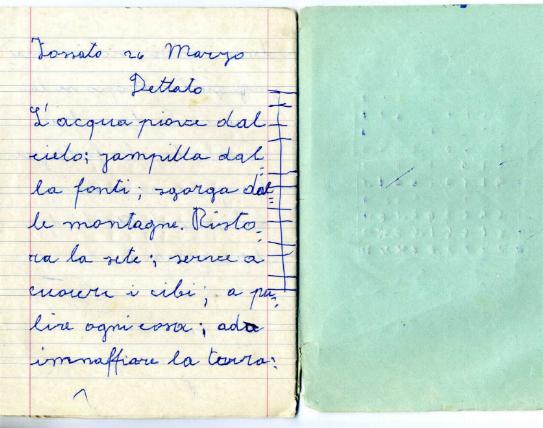 Tossato 26 Marzo
Dettato
L'acqua piove dal
cielo; zampilla dal=
la fonti; sgorga dal
le montagne. Risto=
ra la sete; serve a
cuocere i cibi; a pu=
lire ogni cosa; ad
imnaffiare la terra: